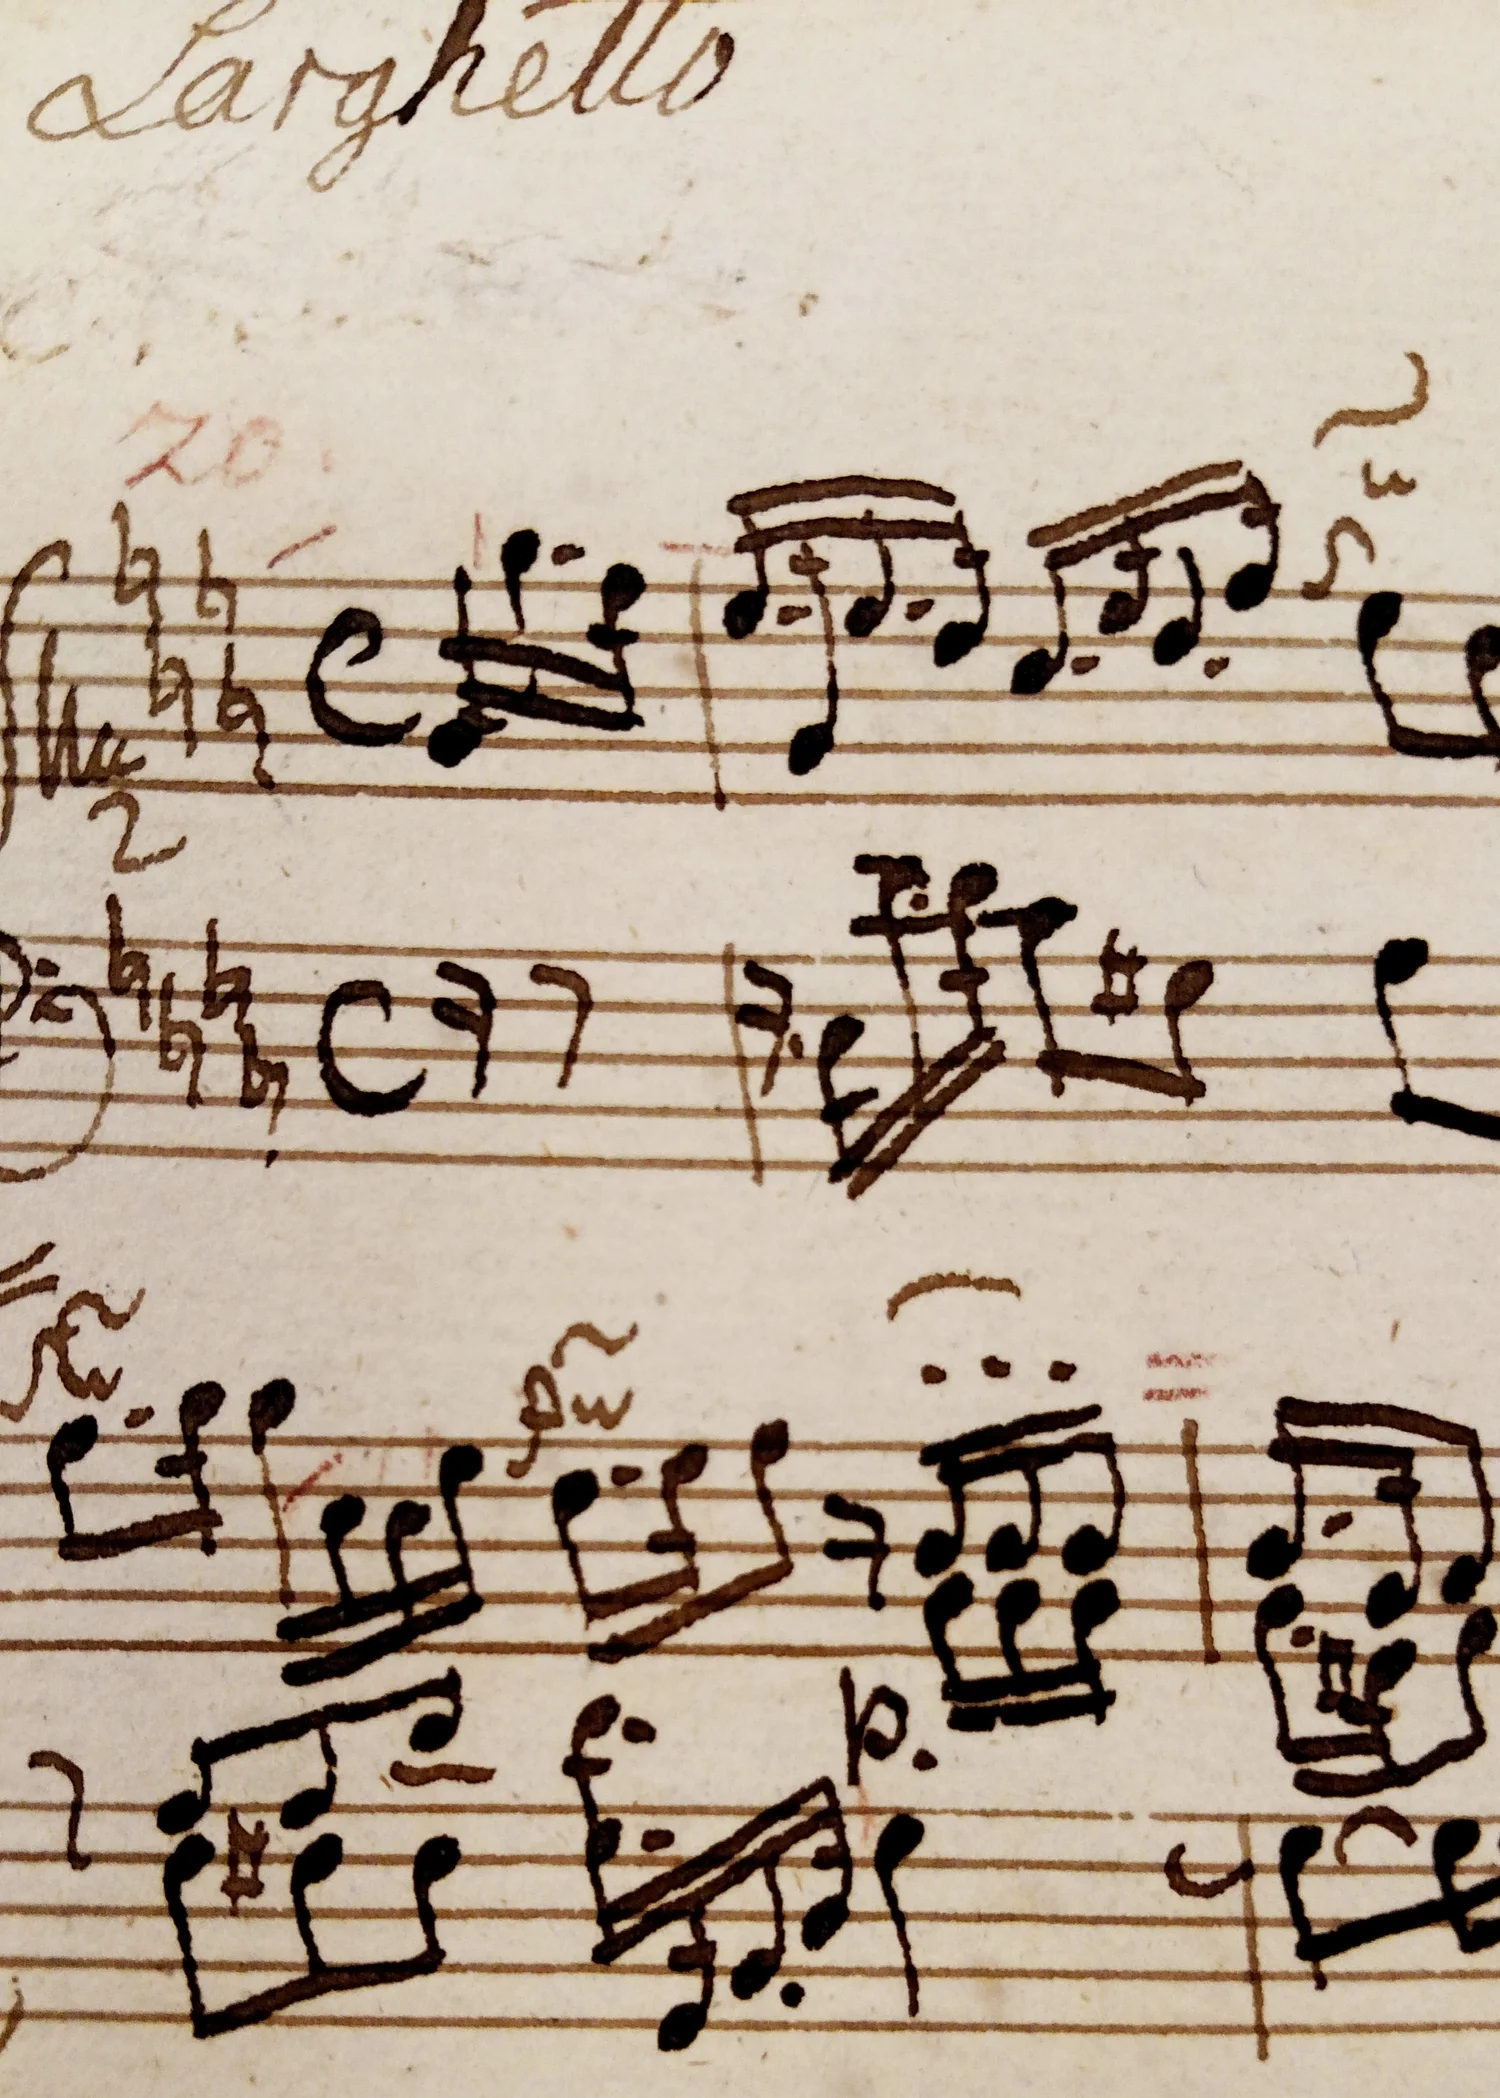 Larghetto
20.
2
p.